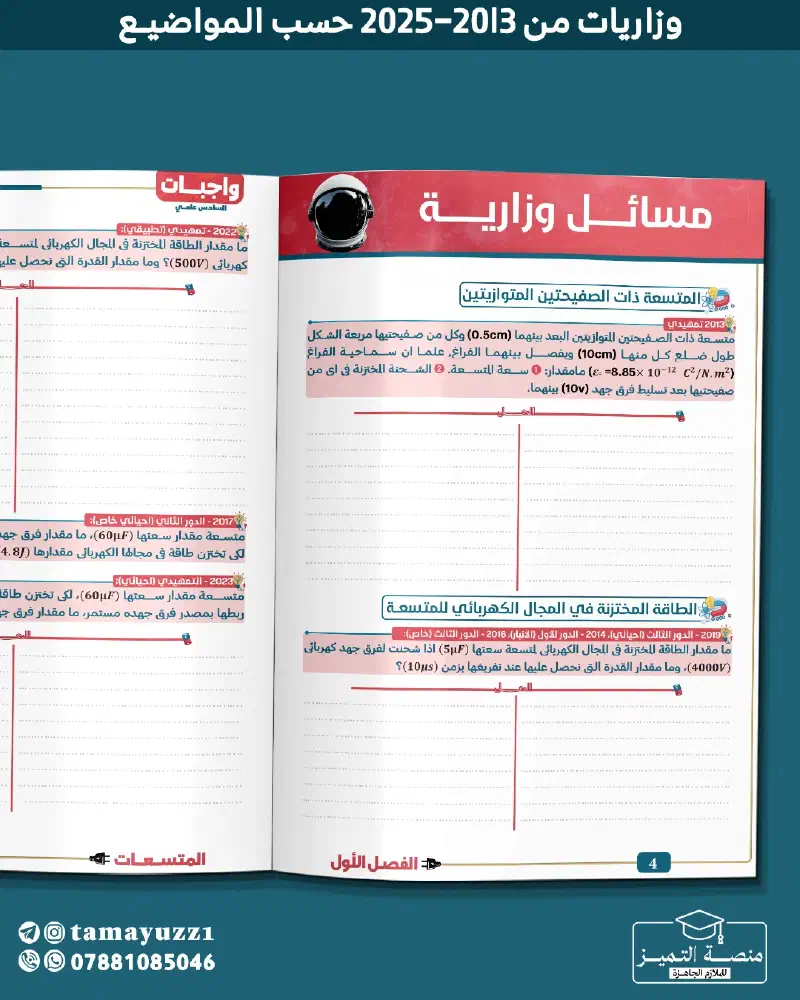 وزاريات من 2013-2025 حسب المواضيع
مسائل وزارية
المتسعة ذات الصفيحتين المتوازيتين
2013 تمهيدي
متسعة ذات الصفيحتين المتوازيتين البعد بينهما (0.5cm) وكل من صفيحتيها مربعة الشكل
طول ضلع كل منها (10cm) ويفصل بينهما الفراغ، علما ان سماحية الفراغ
(ε₀ =8.85× 10⁻¹² C²/N.m²) مامقدار: 1 سعة المتسعة. 2 الشحنة المختزنة في اي من
صفيحتيها بعد تسليط فرق جهد (10v) بينهما.
الحل
الطاقة المختزنة في المجال الكهربائي للمتسعة
2019 - الدور الثالث (احيائي)، 2014 - الدور الأول (الانبار)، 2016 - الدور الثالث (خاص):
ما مقدار الطاقة المختزنة في المجال الكهربائي لمتسعة سعتها (5μF) اذا شحنت لفرق جهد كهربائي
(4000V)، وما مقدار القدرة التي نحصل عليها عند تفريغها بزمن (10μs)؟
الحل
4
الفصل الأول
واجبات
السادس علمي
2022 - تمهيدي (تطبيقي):
ما مقدار الطاقة المختزنة في المجال الكهربائي لمتسعة
كهربائي (500V)؟ وما مقدار القدرة التي نحصل
2017 - الدور الثاني (احيائي خاص):
متسعة مقدار سعتها (60μF)، ما مقدار فرق
لكي تختزن طاقة في مجالها الكهربائي مقدارها (4.8J
2023 - التمهيدي (احيائي):
متسعة مقدار سعتها (60μF)، لكي تختزن
ربطها بمصدر فرق جهده مستمر، ما مقدار فرق
المتسعات
tamayuzz1
07881085046
منصة التميز
للملازم الجاهزة